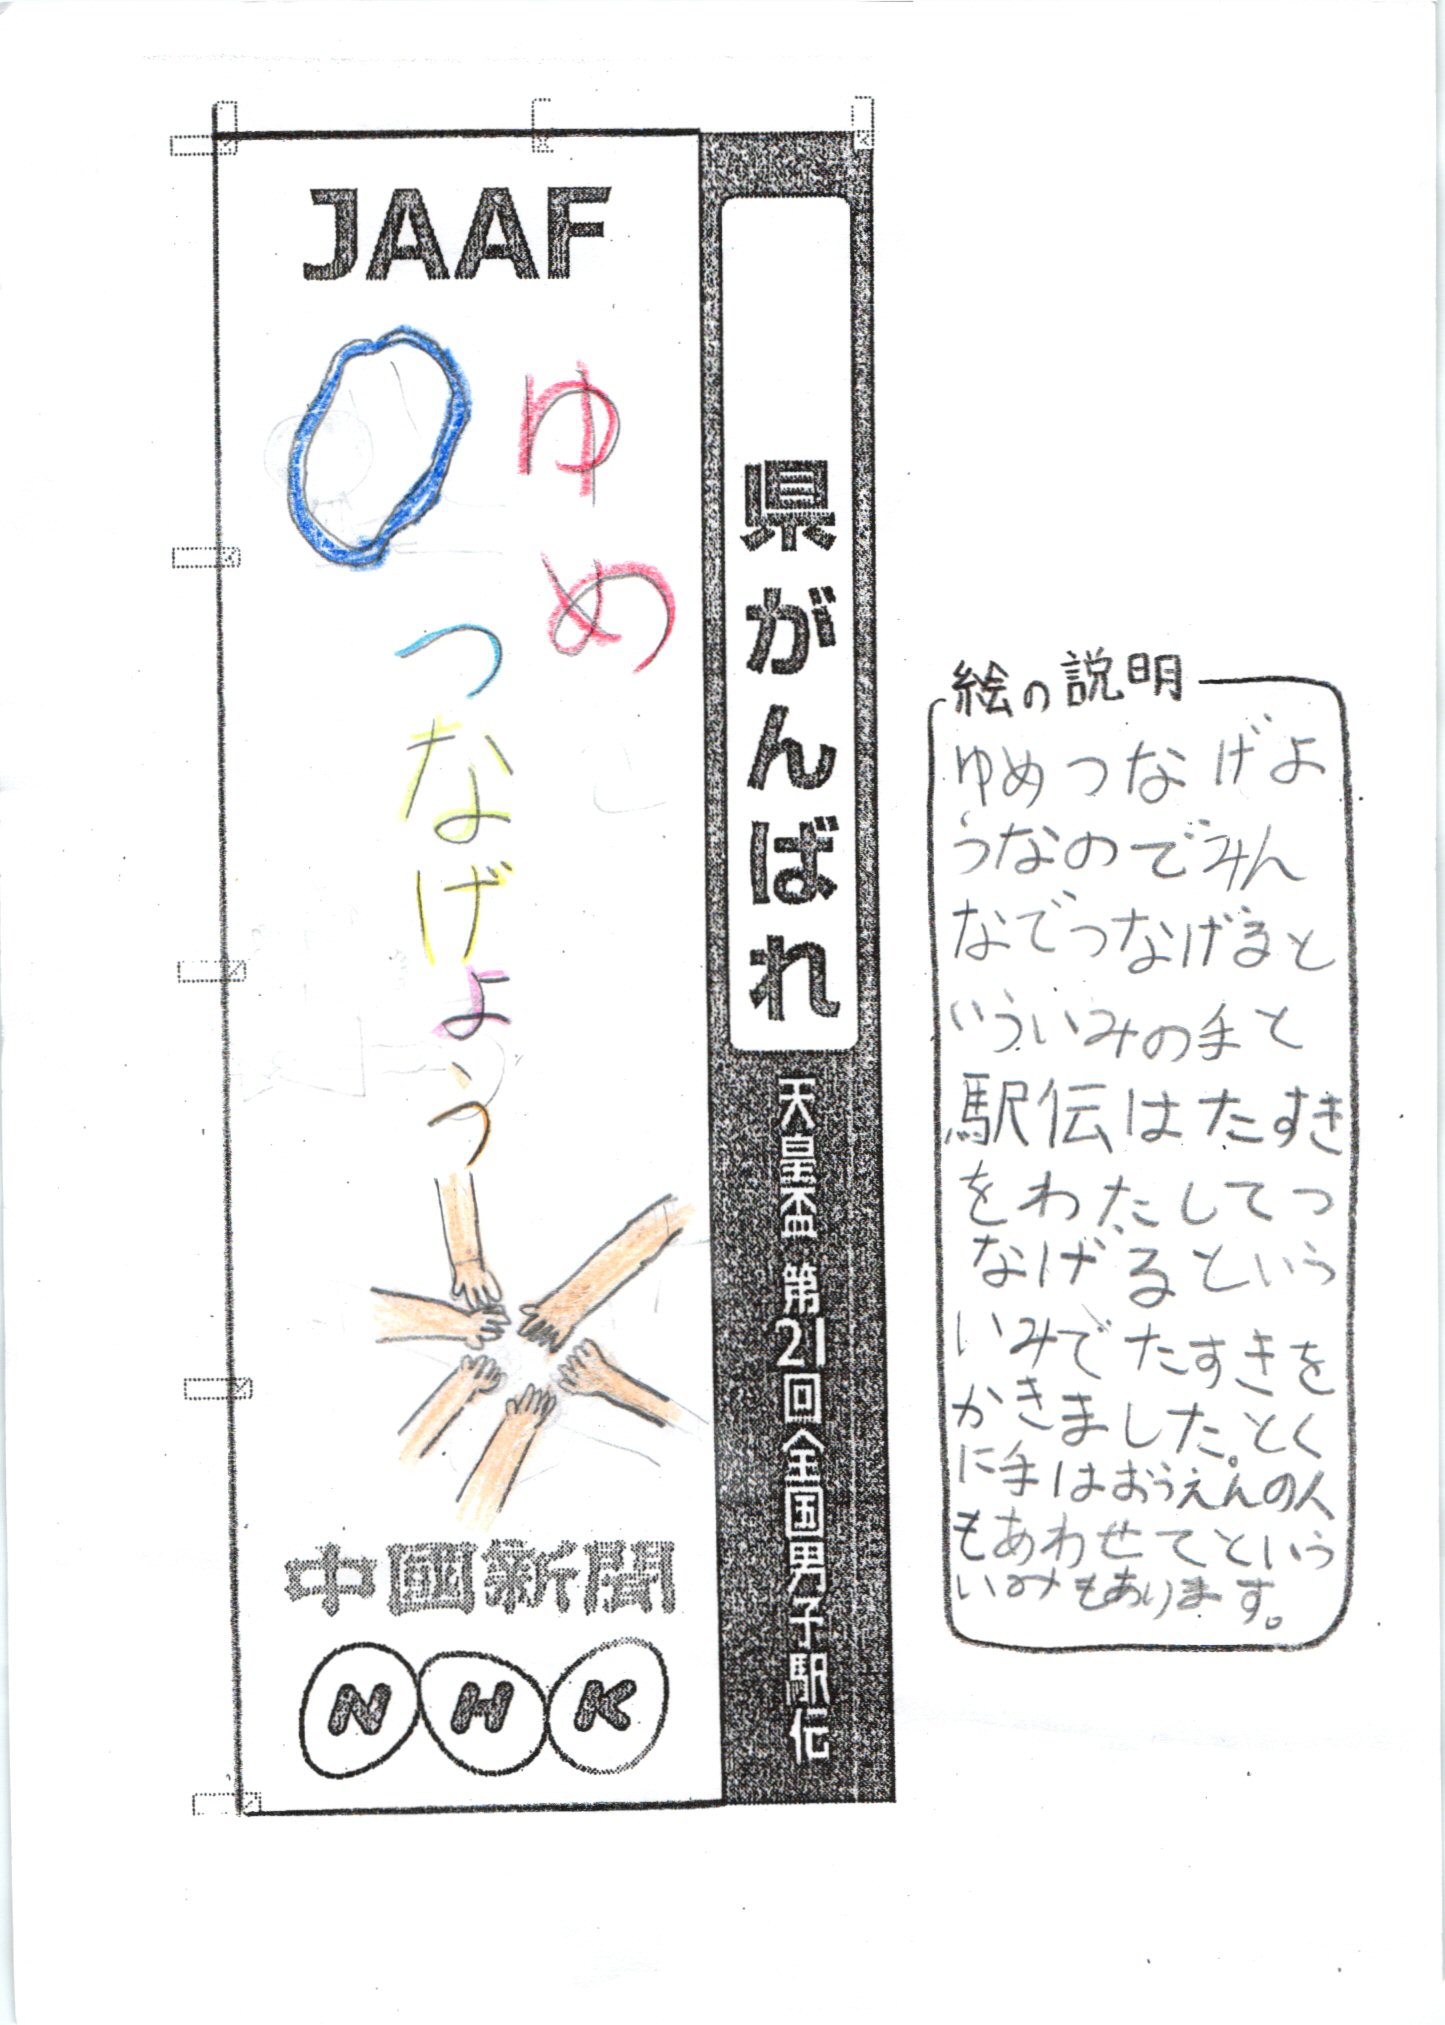 JAAF
ゆめ
つなげよう
中國新聞
NHK
県がんばれ
天皇盃 第21回全国男子駅伝
絵の説明
ゆめつなげよ
うなのでみん
なでつなげると
いういみの手と
駅伝はたすき
をわたしてつ
なげるという
いみでたすきを
かきました。とく
に手はおうえんの人
もあわせてという
いみもあります。